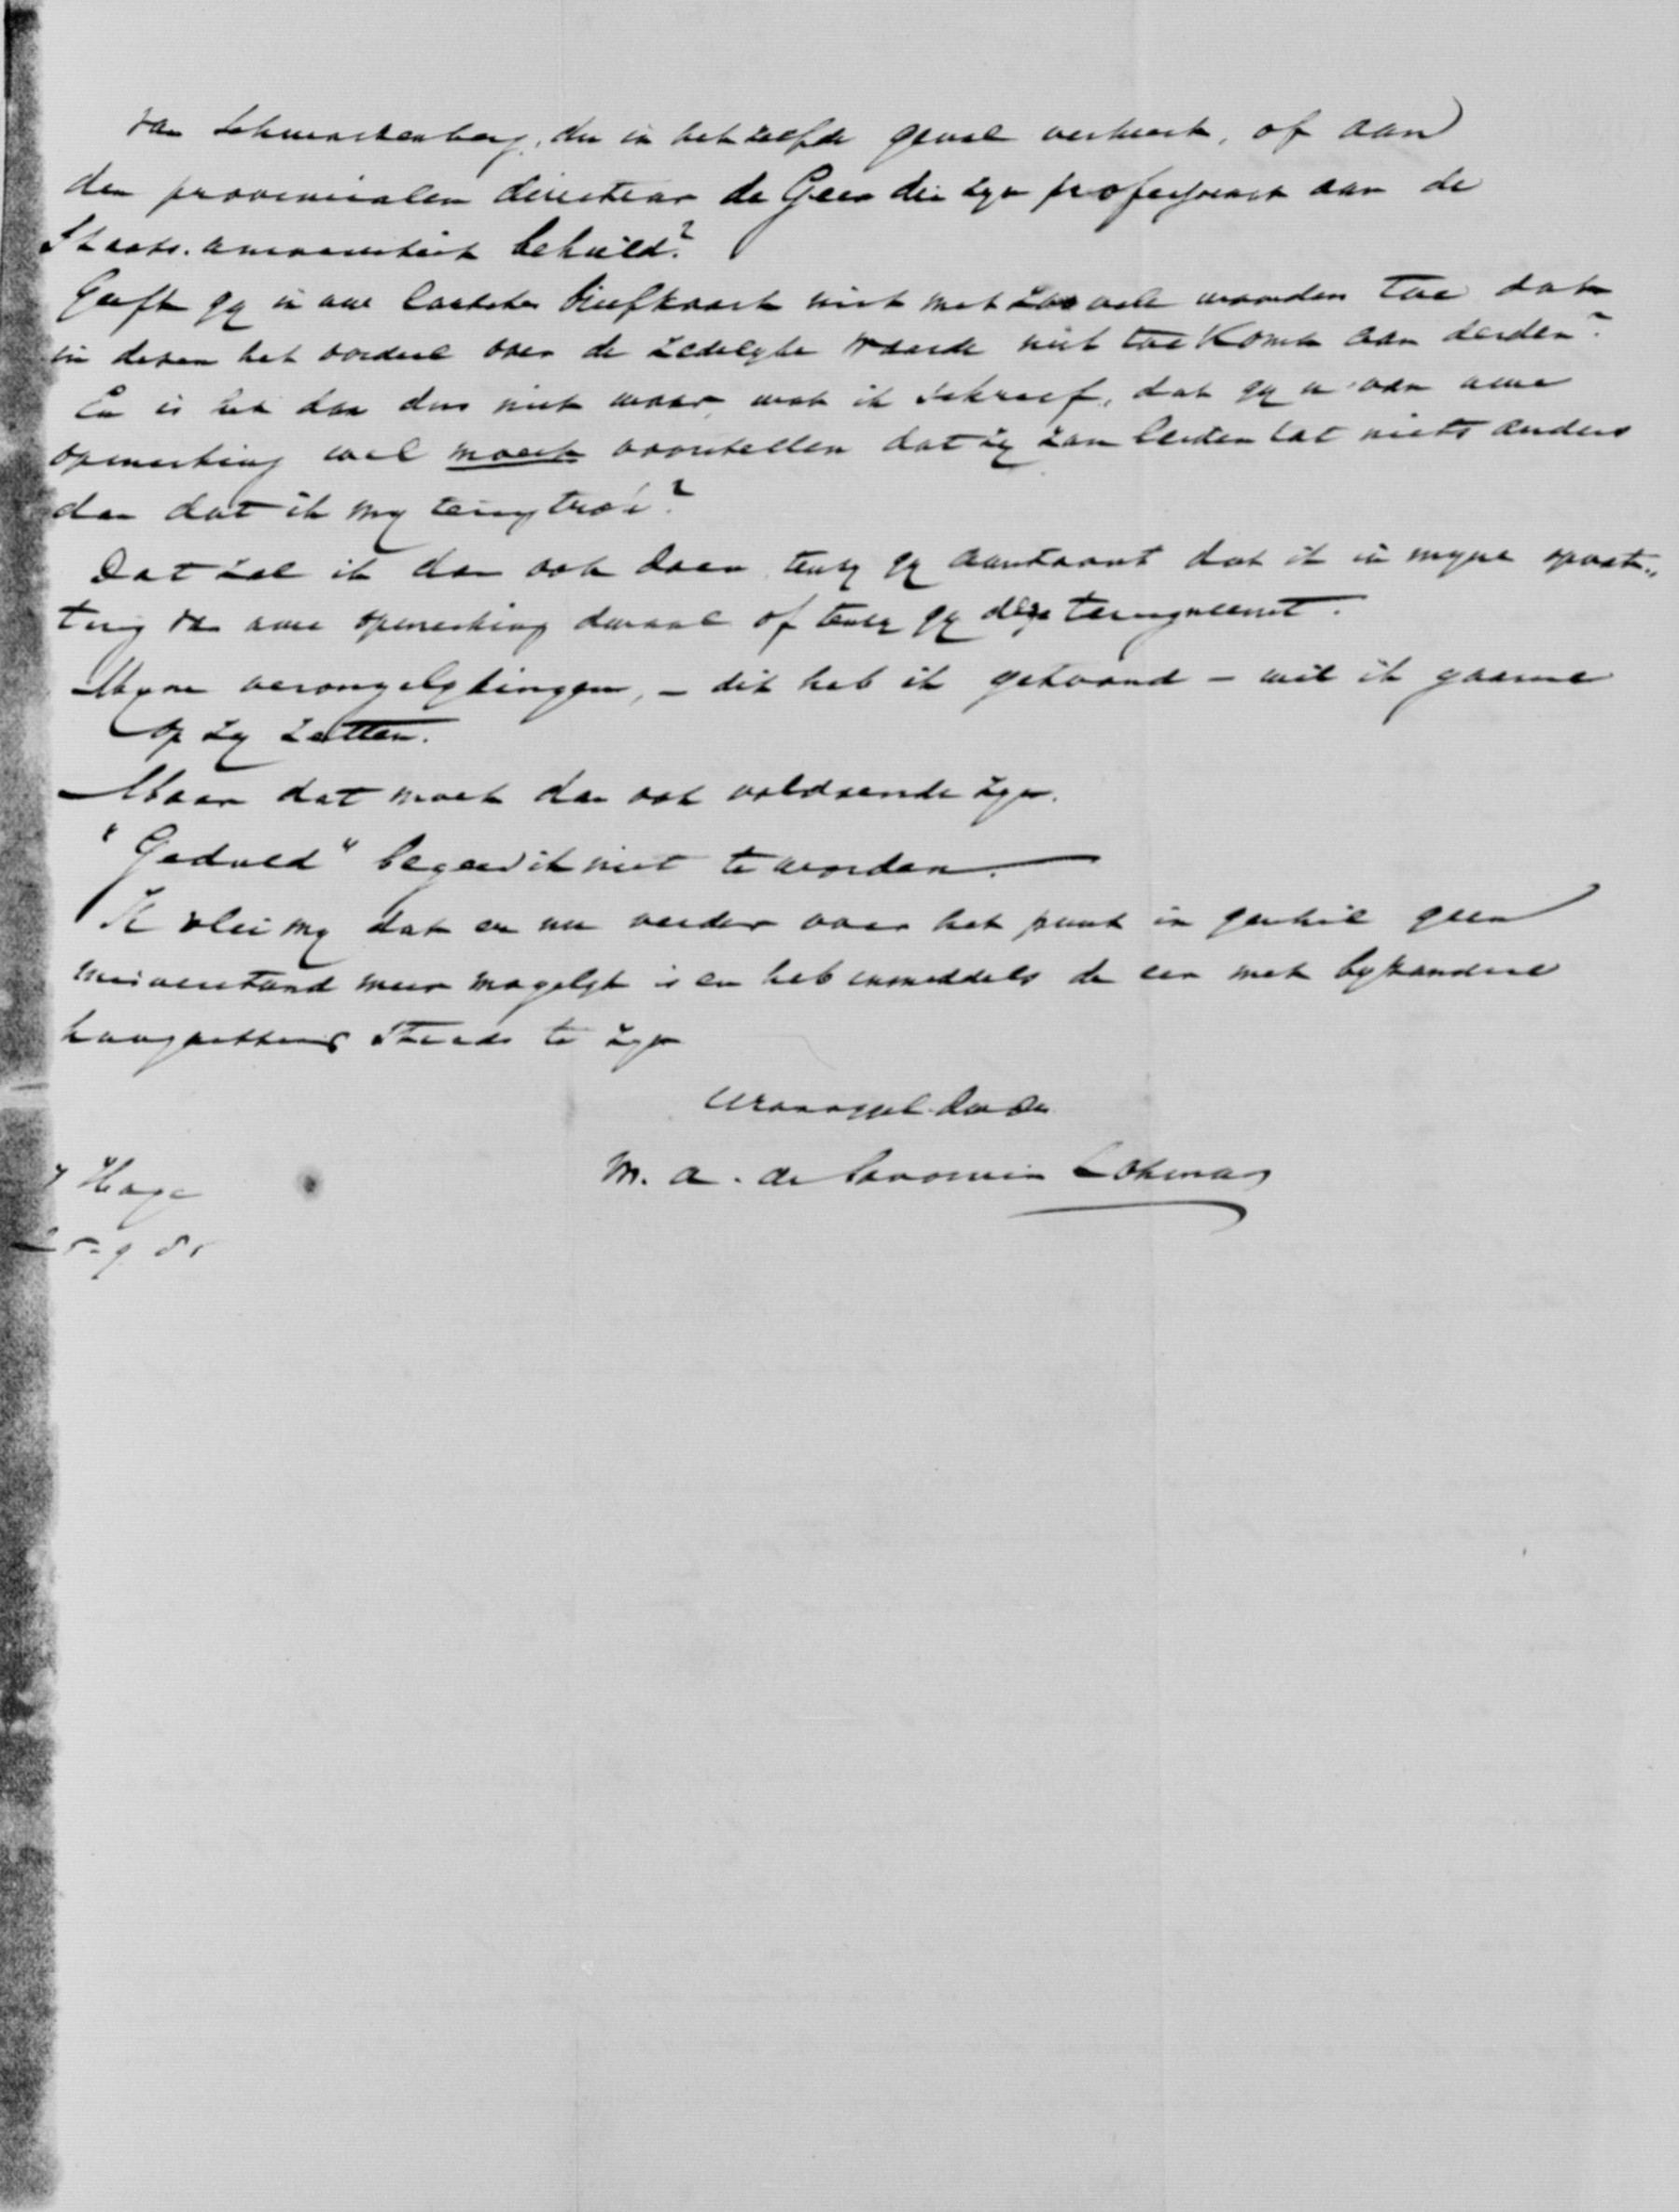 van Schwartzenberg, die in hetzelfde geval verkeert, of aan
den provincialen directeur de Geer die zyn professoraat aan de
Staats. universiteit behield?
Geeft gy in uwe laatste briefkaart niet met zoo vele woorden toe dat
in dezen het oordeel over de zedelyke waarde niet toekomt aan derden?
En is het dan dus niet waar, wat ik schreef, dat gy u van uwe
opmerking wel moest voorstellen dat zy zou leiden tot niets anders
dan dat ik my terugtrok?
Dat zal ik dan ook doen tenzy gy aantoont dat ik in myne opvat-
ting van uwe opmerking dwaal of tenzy gy deze terugneemt.
Myne verongelykingen, – dit heb ik getoond – wil ik gaarne
op zy zetten.
Maar dat moet dan ook voldoende zyn.
"Geduld" begeer ik niet te worden.
Ik vlei my dat er nu verder over het punt in geschil geen
misverstand meer mogelyk is en heb inmiddels de eer met byzondere
hoogachting steeds te zyn
M. A. de Savornin Lohman
's Hage